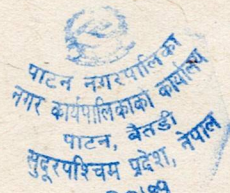 पाटन नगरपालिका
नगर कार्यपालिकाको कार्यालय
पाटन, बैतडी
सुदूरपश्चिम प्रदेश, नेपाल